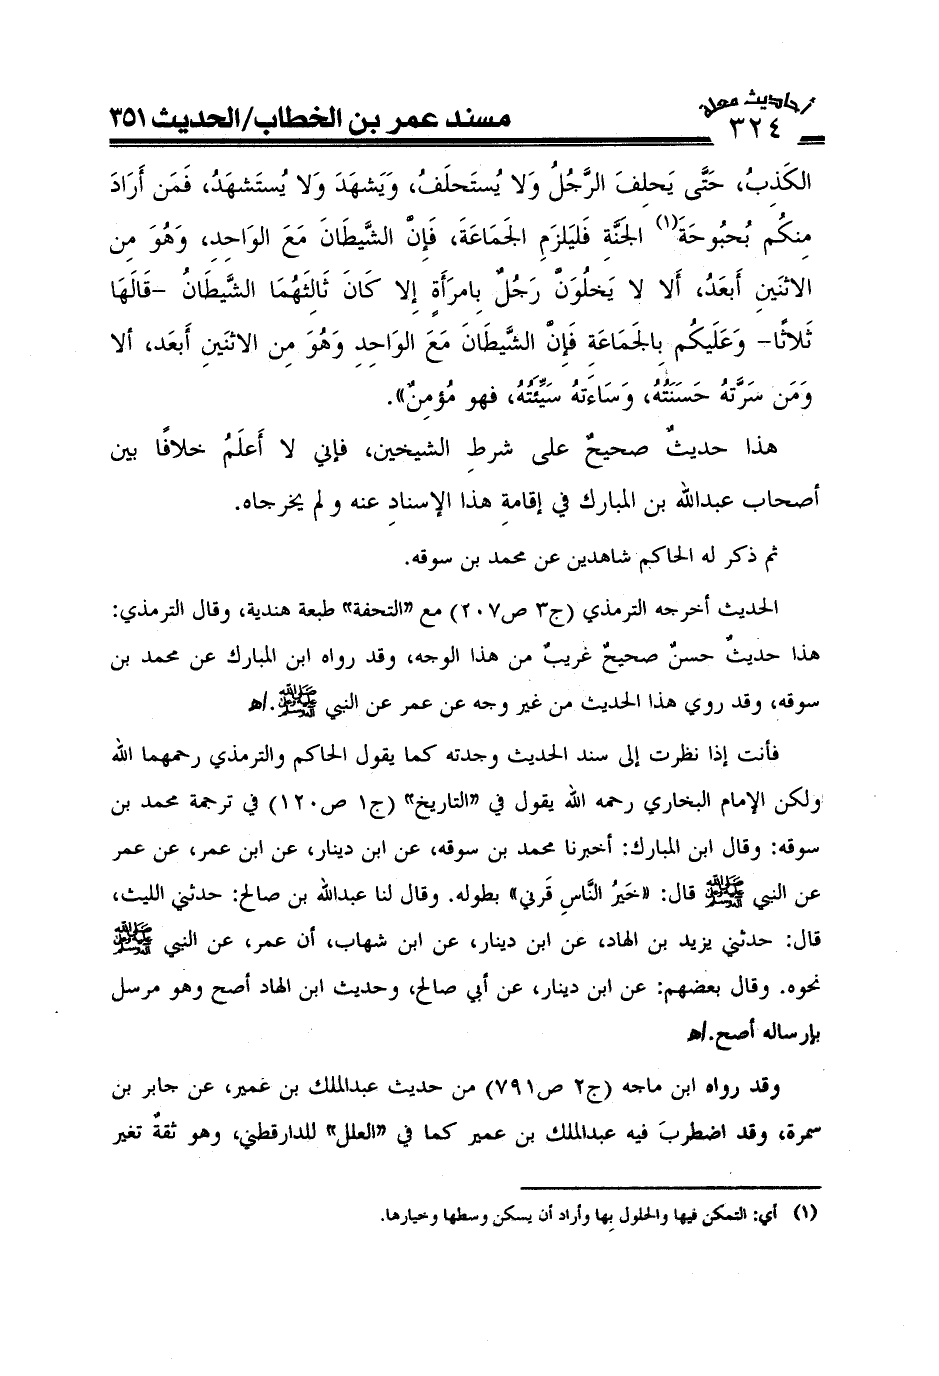 أحاديث معلة
٣٢٤
مسند عمر بن الخطاب/الحديث ٣٥١
الكَذِبُ، حَتَّى يَحلِفَ الرَّجُلُ وَلا يُستَحلَفُ، وَيَشهَدَ وَلا يُستَشهَدُ، فَمَن أَرَادَ
مِنكُم بُحبُوحَةَ(١) الجَنَّةِ فَليَلزَمِ الجَمَاعَةَ، فَإِنَّ الشَّيطَانَ مَعَ الوَاحِدِ، وَهُوَ مِن
الاثنَينِ أَبعَدُ، أَلا لا يَخلُوَنَّ رَجُلٌ بِامرَأَةٍ إِلا كَانَ ثَالثَهُمَا الشَّيطَانُ -قَالَهَا
ثَلاثًا- وَعَلَيكُم بِالجَمَاعَةِ فَإِنَّ الشَّيطَانَ مَعَ الوَاحِدِ وَهُوَ مِن الاثنَينِ أَبعَد، ألا
وَمَن سَرَّتهُ حَسَنَتُهُ، وَسَاءَتهُ سَيِّئَتُهُ، فهو مُؤمِنٌ».
هذا حديثٌ صحيحٌ على شرطِ الشيخين، فإني لا أَعلَمُ خلافًا بين
أصحاب عبدالله بن المبارك في إقامةِ هذا الإسنادِ عنه و لم يخرجاه.
ثم ذكر له الحاكم شاهدين عن محمد بن سوقه.
الحديث أخرجه الترمذي (ج٣ ص٢٠٧) مع «التحفة» طبعة هندية، وقال الترمذي:
هذا حديثٌ حسنٌ صحيحٌ غريبٌ من هذا الوجه، وقد رواه ابن المبارك عن محمد بن
سوقه، وقد روي هذا الحديث من غير وجه عن عمر عن النبي ﷺ.اﻫ
فأنت إذا نظرت إلى سند الحديث وجدته كما يقول الحاكم والترمذي رحمهما الله
ولكن الإمام البخاري رحمه الله يقول في «التاريخ» (ج١ ص١٢٠) في ترجمة محمد بن
سوقه: وقال ابن المبارك: أخبرنا محمد بن سوقه، عن ابن دينار، عن ابن عمر، عن عمر
عن النبي ﷺ قال: «خَيرُ النَّاسِ قَرني» بطوله. وقال لنا عبدالله بن صالح: حدثني الليث،
قال: حدثني يزيد بن الهاد، عن ابن دينار، عن ابن شهاب، أن عمر، عن النبي ﷺ
نحوه. وقال بعضهم: عن ابن دينار، عن أبي صالح، وحديث ابن الهاد أصح وهو مرسل
بإرساله أصح.اﻫ
وقد رواه ابن ماجه (ج٢ ص٧٩١) من حديث عبدالملك بن عمير، عن جابر بن
سمرة، وقد اضطربَ فيه عبدالملك بن عمير كما في «العلل» للدارقطني، وهو ثقةٌ تغير
(١) أي: التمكن فيها والحلول بها وأراد أن يسكن وسطها وخيارها.